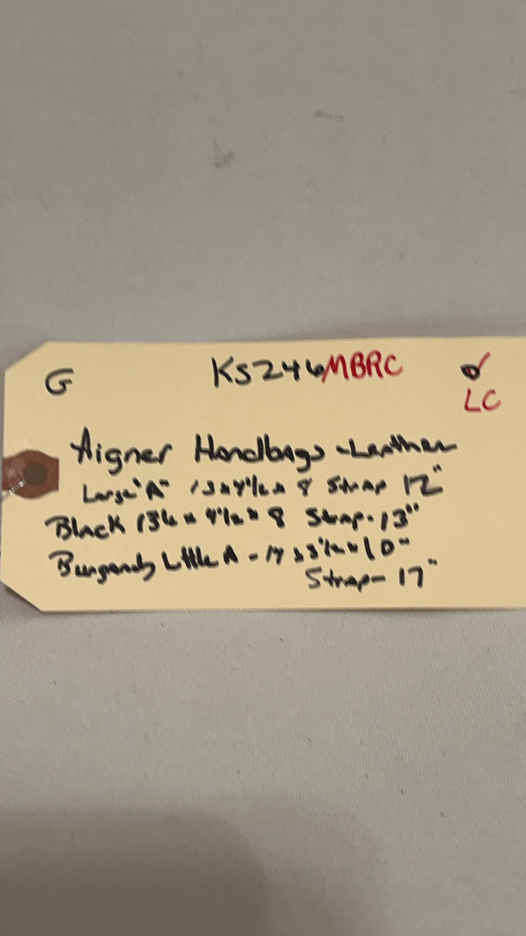 G KS246MBRC
LC
Aigner Handbags - Leather
Large "A" 13 x 4 1/2 x 8 Strap 12"
Black 13 x 4 1/2 x 8 Strap - 13"
Burgandy Little A - 14 x 3 1/2 x 10"
Strap - 17"